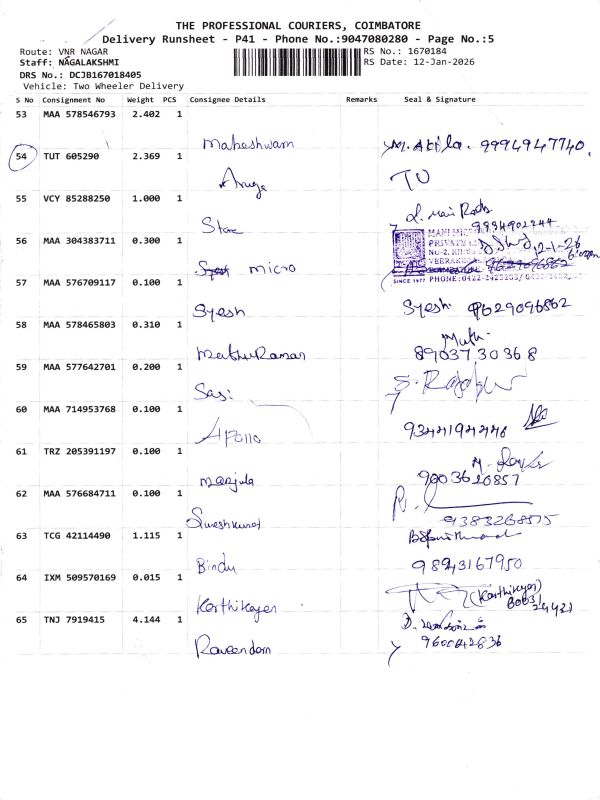 THE PROFESSIONAL COURIERS, COIMBATORE
Delivery Runsheet - P41 - Phone No.:9047080280 - Page No.:5
Route: VNR NAGAR RS No.: 1670184
Staff: NAGALAKSHMI RS Date: 12-Jan-2026
DRS No.: DCJB167018405
Vehicle: Two Wheeler Delivery
S No Consignment No Weight PCS Consignee Details Remarks Seal & Signature
53 MAA 578546793 2.402 1
Maheshwam M. Akila. 9994947740.
54 TUT 605290 2.369 1
Anuga TO
55 VCY 85288250 1.000 1
Store 9994902244
56 MAA 304383711 0.300 1
PRIVATE
12-1-26
micro
SINCE 1977 PHONE:0422-
57 MAA 576709117 0.100 1
Syesh Syesh 9629096862
58 MAA 578465803 0.310 1
Muth.
Mathu Raman 89037 30368
59 MAA 577642701 0.200 1
Sasi
60 MAA 714953768 0.100 1
Apollo 9344194446
61 TRZ 205391197 0.100 1
Manjula 9003620857
62 MAA 576684711 0.100 1
Sureshkumar 9383268575
63 TCG 42114490 1.115 1
Bindu 98943167950
64 IXM 509570169 0.015 1
Karthikeyen (Karthikeyan)
65 TNJ 7919415 4.144 1
Raveendam 9600642836